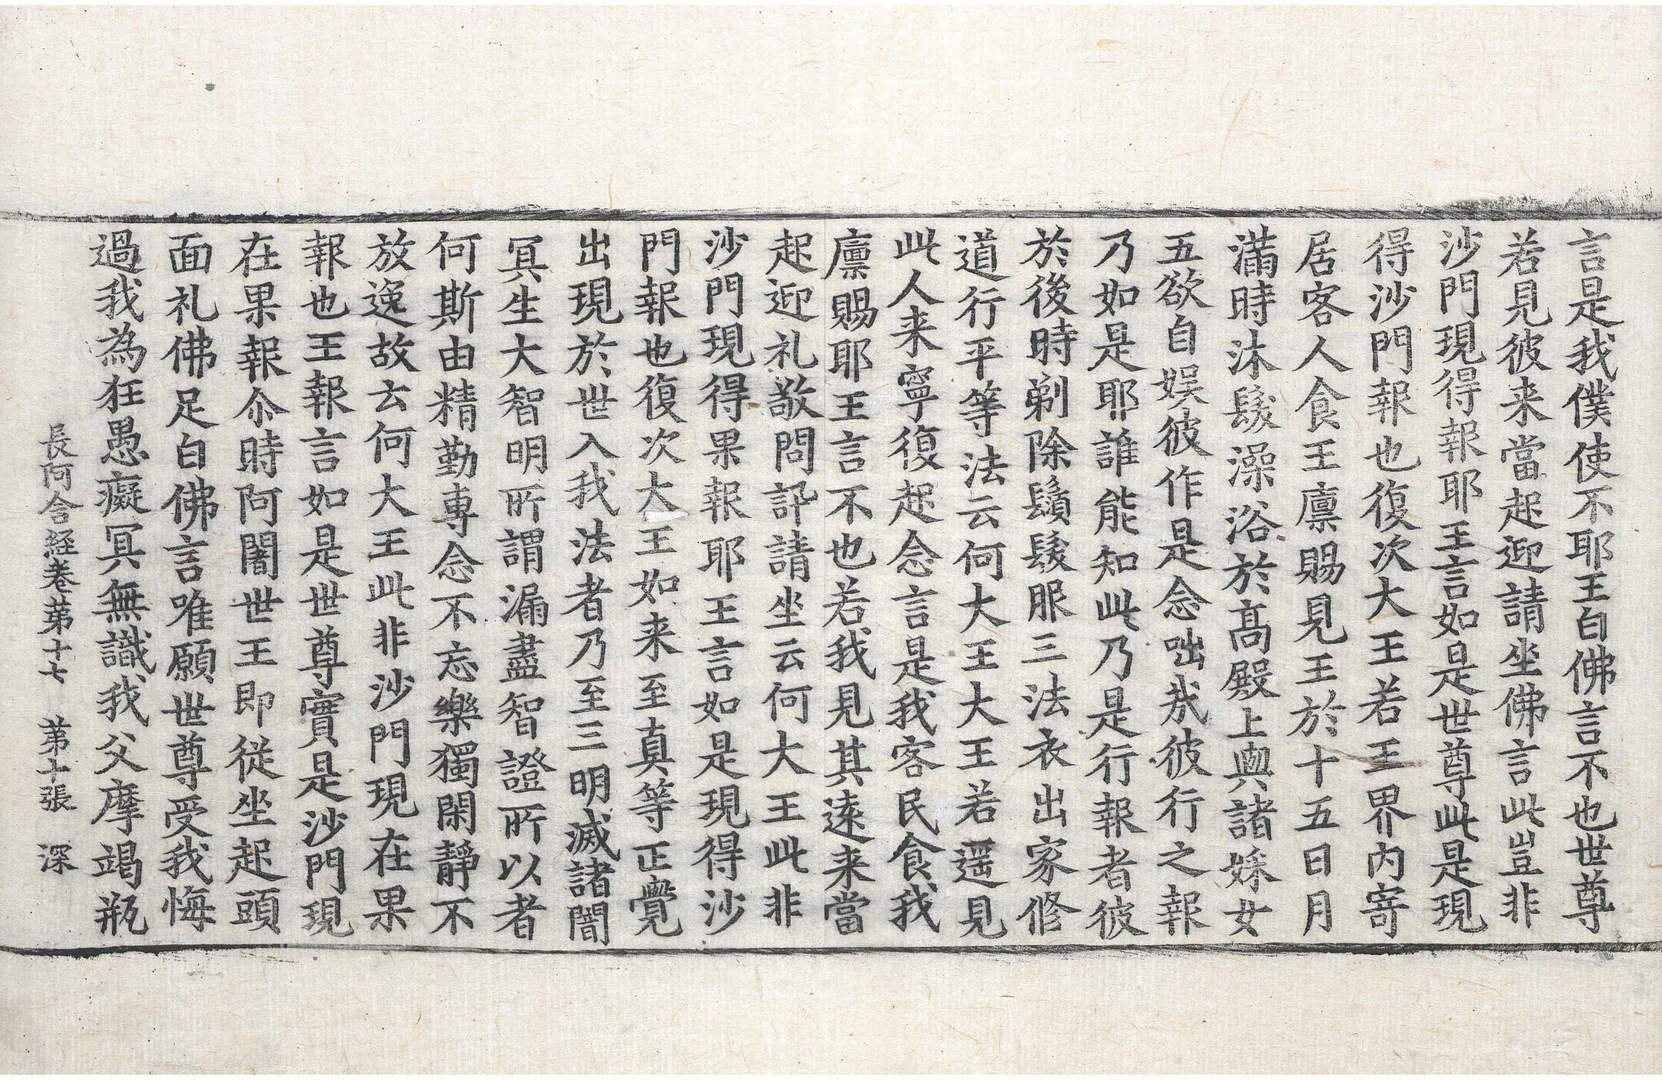 言是我僕使不耶王白佛言不也世尊
若見彼来當起迎請坐佛言此豈非
沙門現得報耶王言如是世尊此是現
得沙門報也復次大王若王界內寄
居客人食王廩賜見王於十五日月
滿時沐髮澡浴於髙殿上與諸婇女
五欲自娱彼作是念咄哉彼行之報
乃如是耶誰能知此乃是行報者彼
於後時剃除鬚髮服三法衣出家修
道行平等法云何大王大王若遥見
此人来寧復起念言是我客民食我
廩賜耶王言不也若我見其遠来當
起迎礼敬問訊請坐云何大王此非
沙門現得果報耶王言如是現得沙
門報也復次大王如来至真等正覺
出現於世入我法者乃至三明滅諸闇
冥生大智明所謂漏盡智證所以者
何斯由精勤專念不忘樂獨閑靜不
放逸故云何大王此非沙門現在果
報也王報言如是世尊實是沙門現
在果報尒時阿闍世王即從坐起頭
面礼佛足白佛言唯願世尊受我悔
過我為狂愚癡冥無識我父摩竭瓶
長阿含経卷第十七 第十張 深